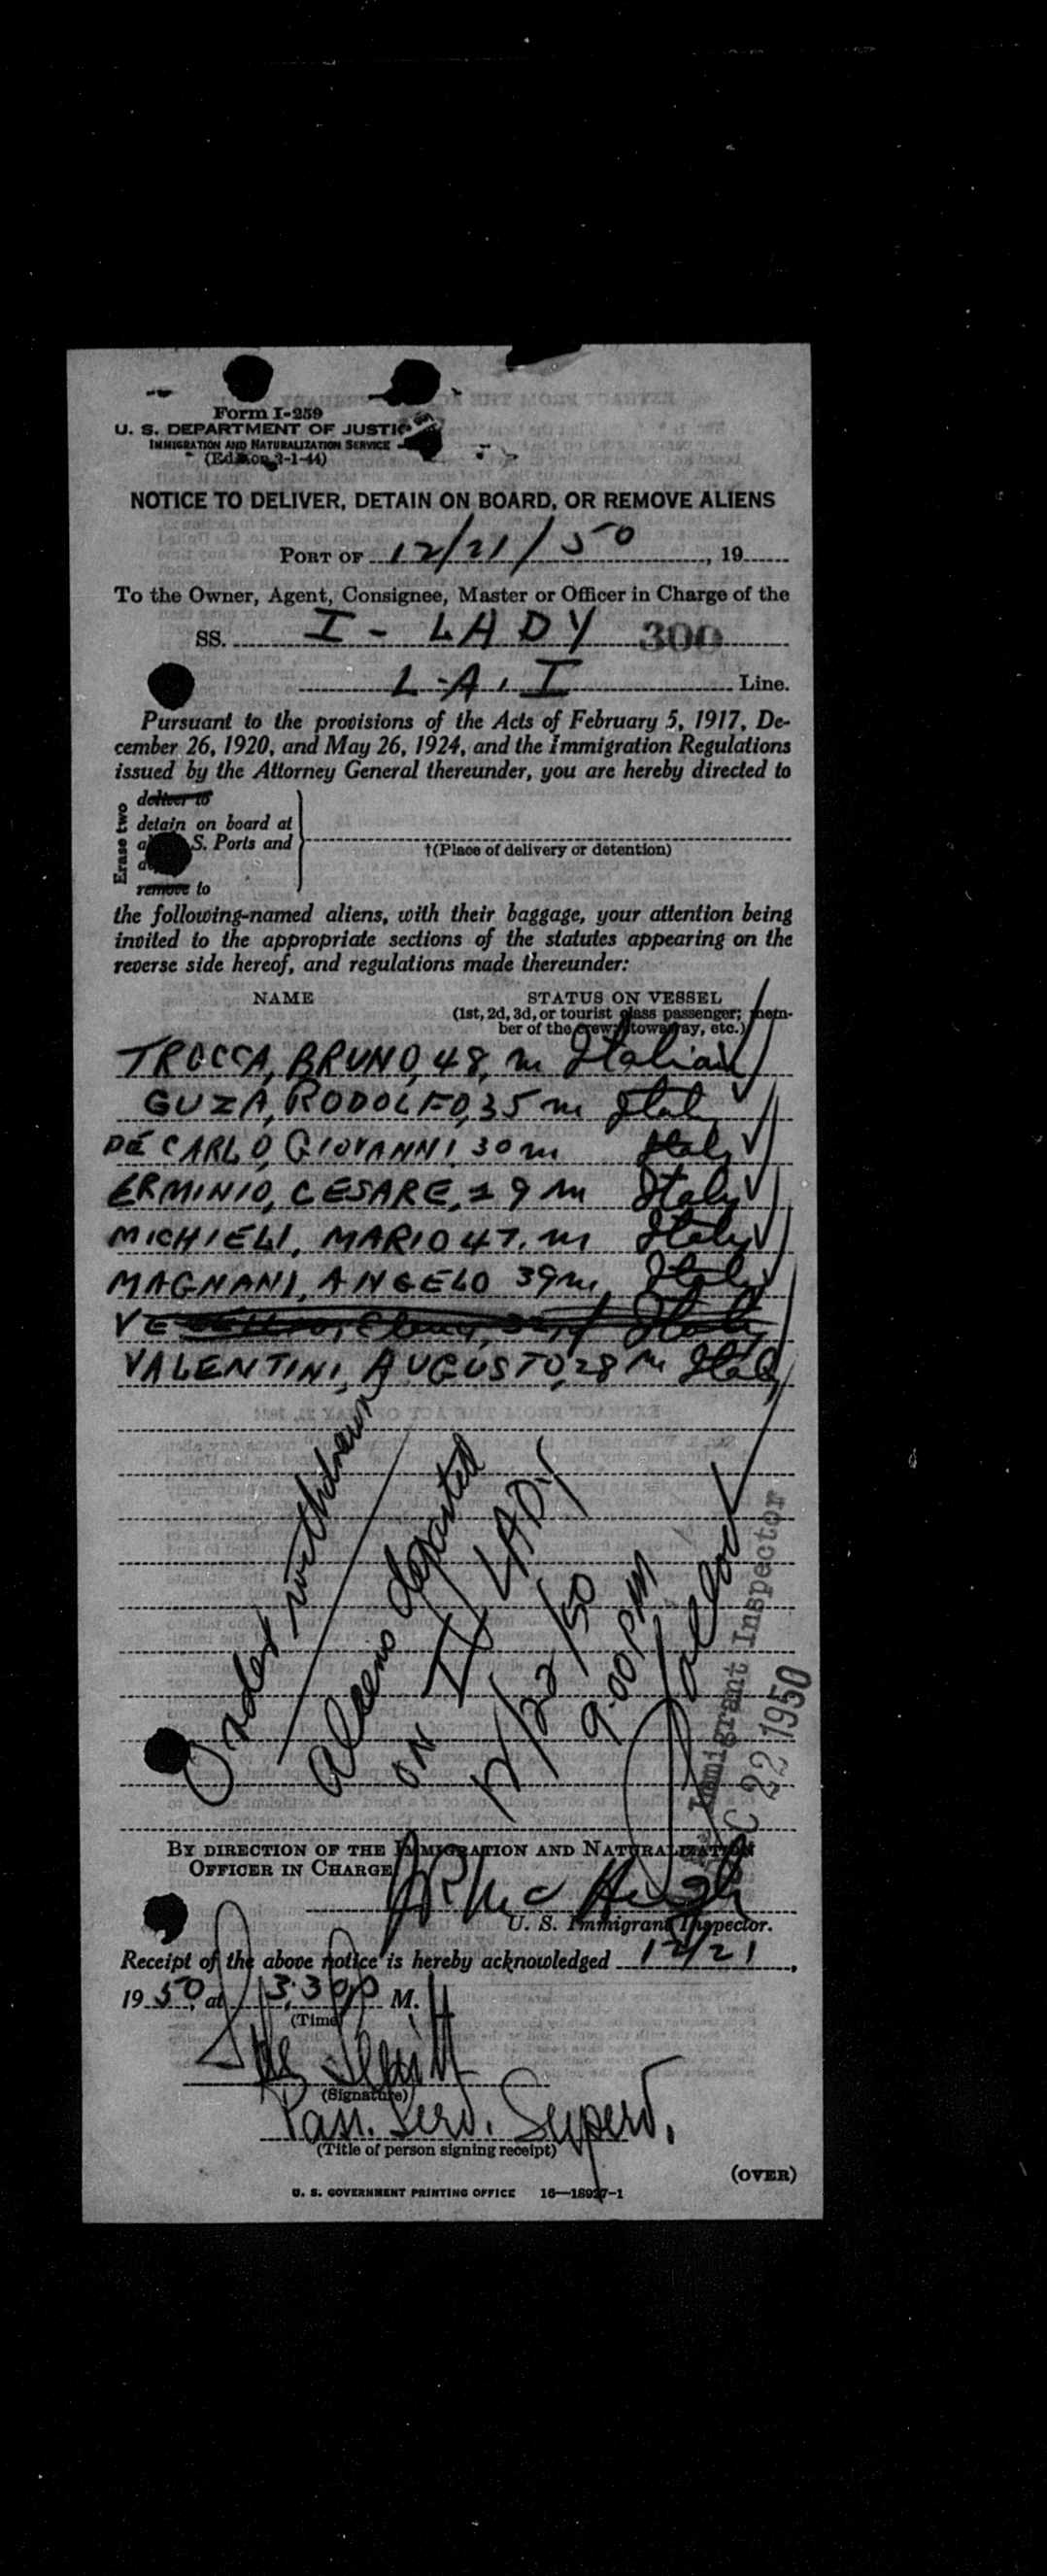 Form I-259
U. S. DEPARTMENT OF JUSTICE
IMMIGRATION AND NATURALIZATION SERVICE
(Edition 3-1-44)
NOTICE TO DELIVER, DETAIN ON BOARD, OR REMOVE ALIENS
PORT OF 12/21/50, 19
To the Owner, Agent, Consignee, Master or Officer in Charge of the
SS. I - LADY 300
L.A.I Line.
Pursuant to the provisions of the Acts of February 5, 1917, De-
cember 26, 1920, and May 26, 1924, and the Immigration Regulations
issued by the Attorney General thereunder, you are hereby directed to
Erase two
deliver to
detain on board at
S. Ports and
†(Place of delivery or detention)
remove to
the following-named aliens, with their baggage, your attention being
invited to the appropriate sections of the statutes appearing on the
reverse side hereof, and regulations made thereunder:
NAME STATUS ON VESSEL
(1st, 2d, 3d, or tourist class passenger; mem-
ber of the crew; stowaway, etc.)
TROCCA, BRUNO, 48, m Italian
GUZA, RODOLFO, 35 m Italy
DE CARLO, GIOVANNI, 30 m Italy
ERMINIO, CESARE, 29 m Italy
MICHIELI, MARIO 47, m Italy
MAGNANI, ANGELO 39 m, Italy
VALENTINI, AUGUSTO, 28 m Italy
Order withdrawn
Aliens departed
ON I LADY
12/22/50
9:00 PM
Immigrant Inspector
22 1950
BY DIRECTION OF THE IMMIGRATION AND NATURALIZATION
OFFICER IN CHARGE
U. S. Immigrant Inspector.
Receipt of the above notice is hereby acknowledged 12/21,
1950, at 3:30 p M.
(Time)
(Signature)
Pass. Serv. Superv.
(Title of person signing receipt)
(OVER)
U. S. GOVERNMENT PRINTING OFFICE 16—18927-1